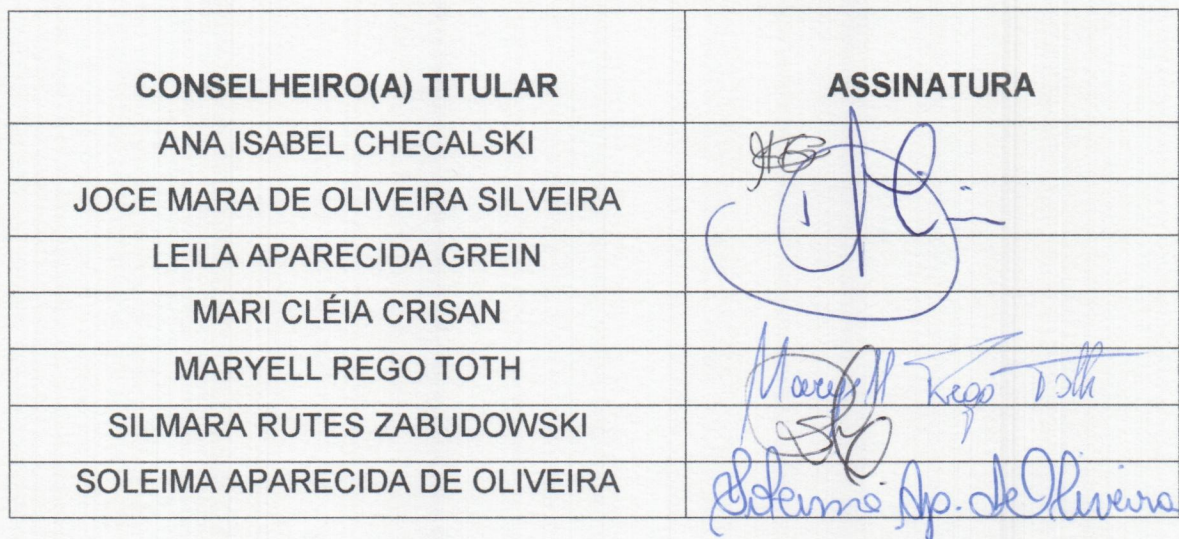 CONSELHEIRO(A) TITULAR ASSINATURA
ANA ISABEL CHECALSKI
JOCE MARA DE OLIVEIRA SILVEIRA
LEILA APARECIDA GREIN
MARI CLÉIA CRISAN
MARYELL REGO TOTH Maryell Rego Toth
SILMARA RUTES ZABUDOWSKI
SOLEIMA APARECIDA DE OLIVEIRA Soleima Ap. de Oliveira